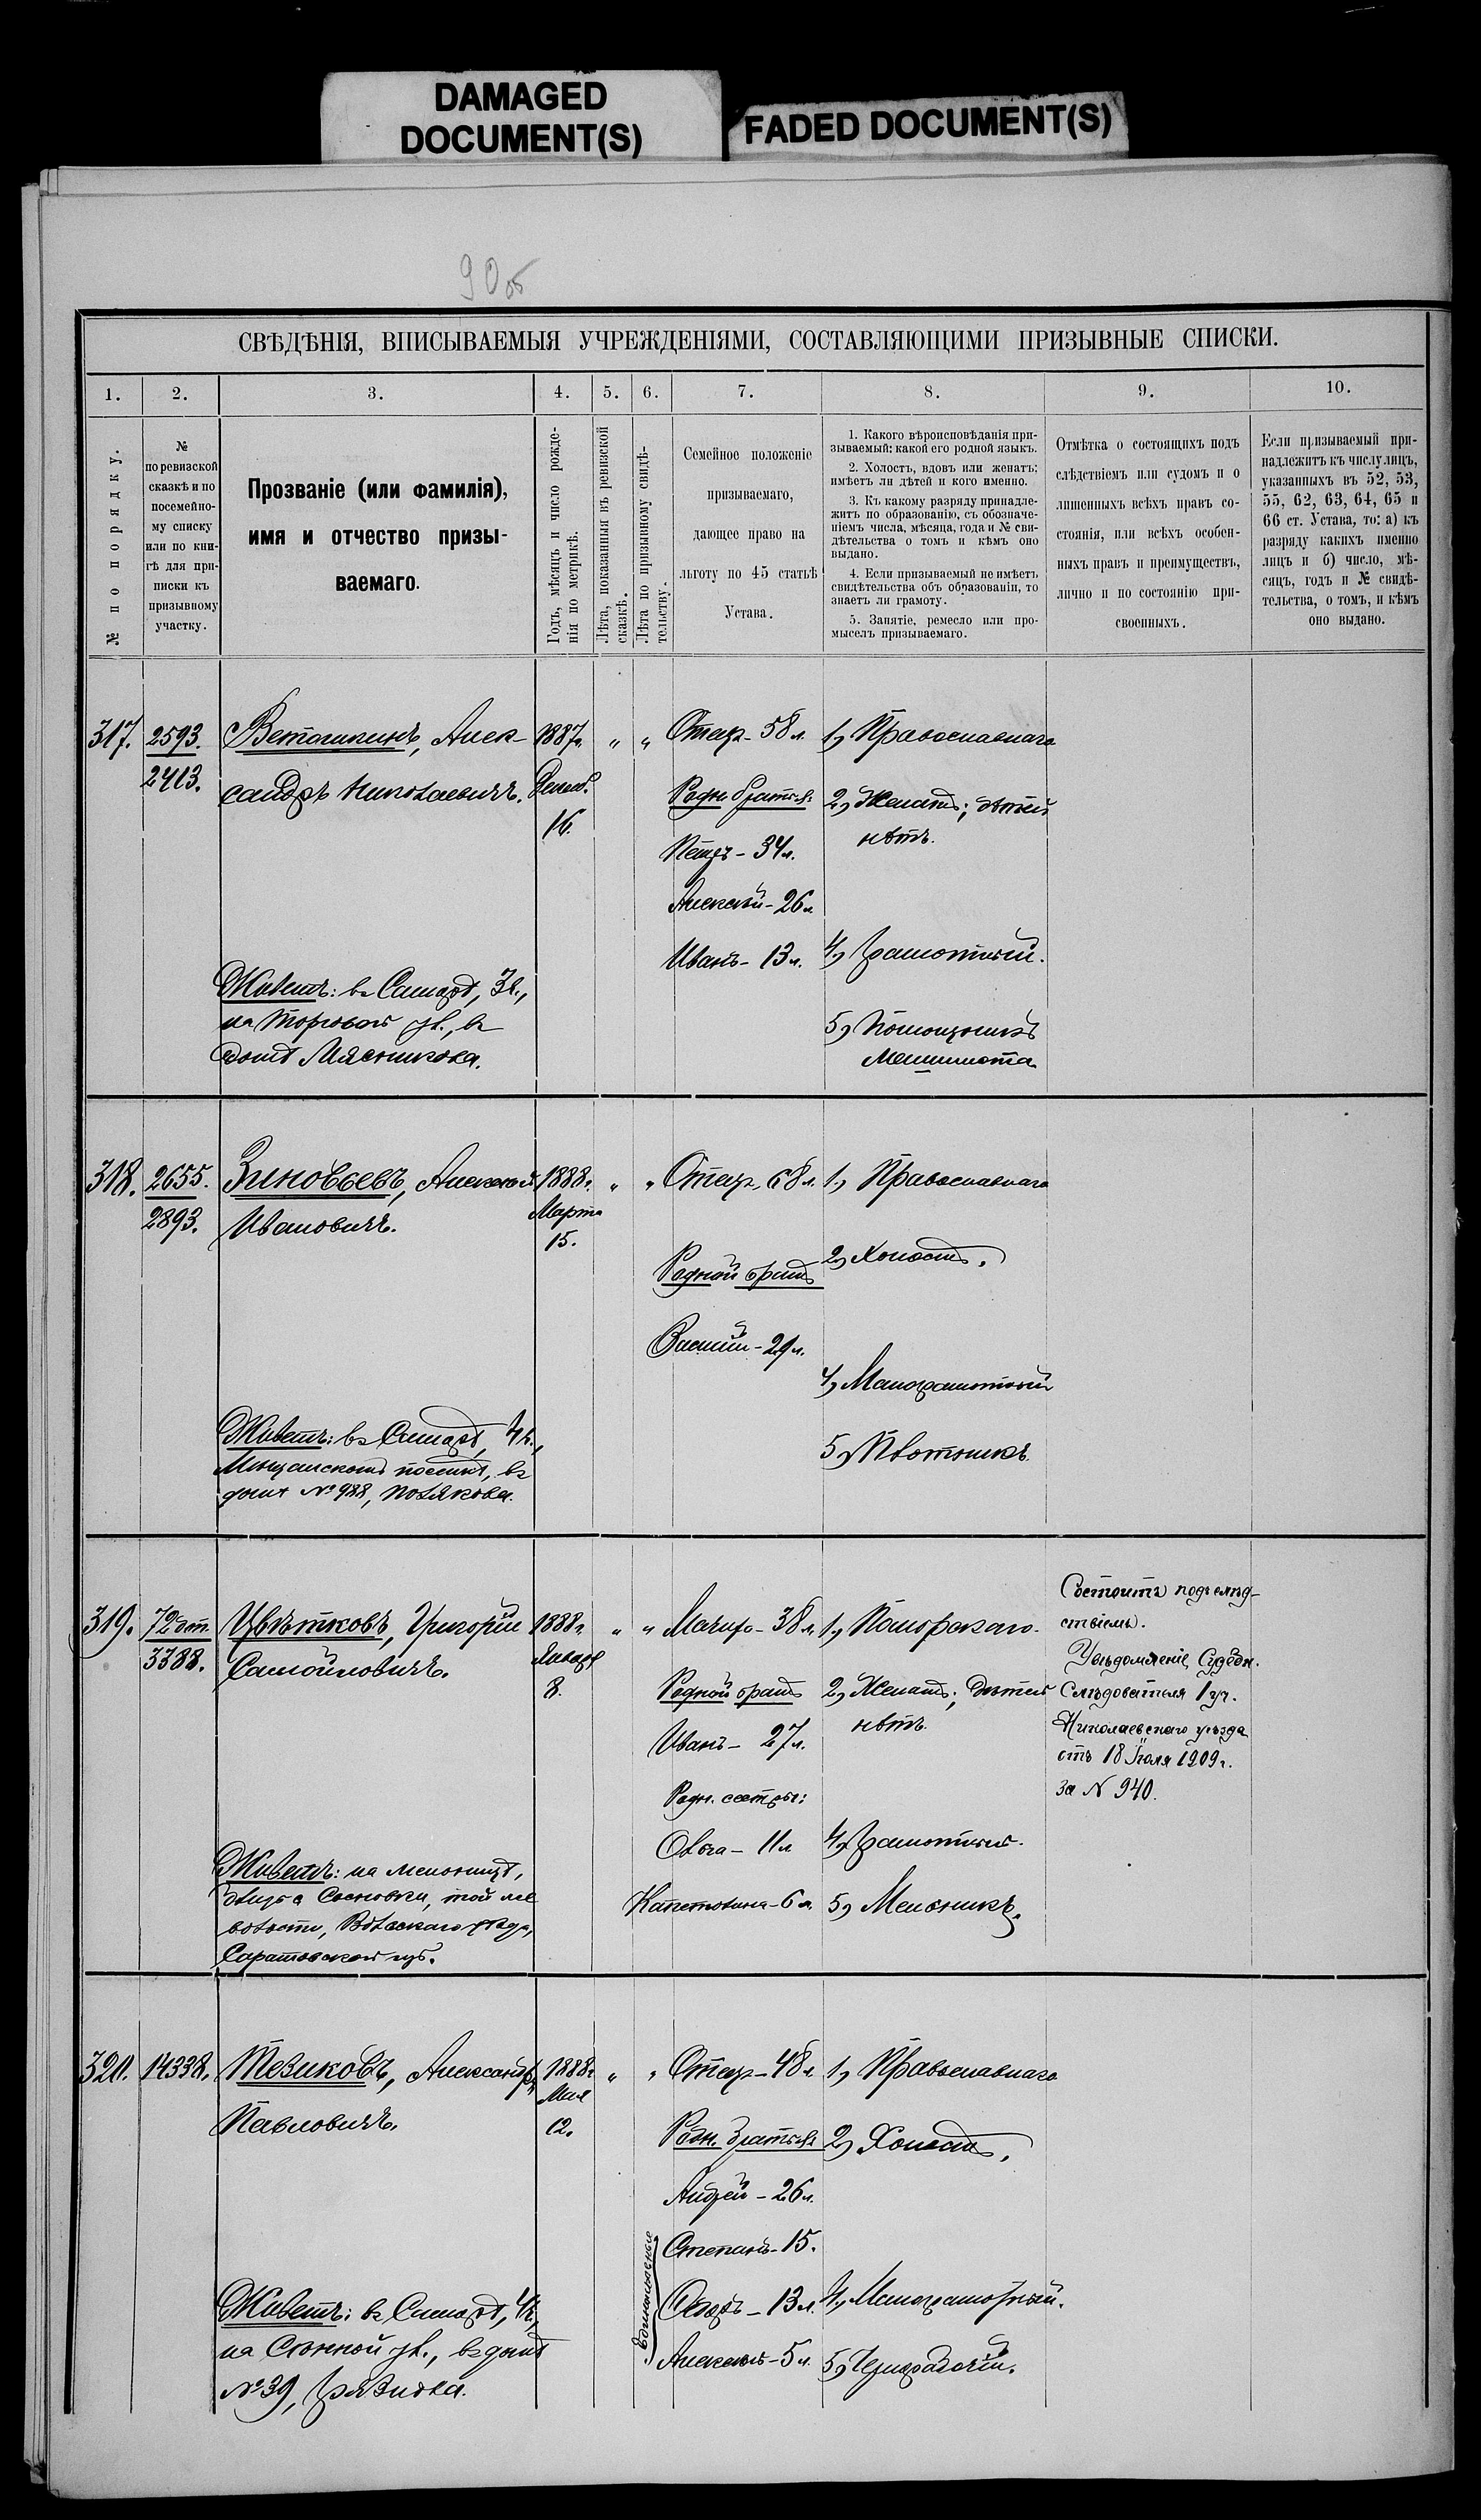 DAMAGED
DOCUMENT(S)
FADED DOCUMENT(S)
90об
СВѢДѢНІЯ, ВПИСЫВАЕМЫЯ УЧРЕЖДЕНІЯМИ, СОСТАВЛЯЮЩИМИ ПРИЗЫВНЫЕ СПИСКИ.
1.
2.
3.
4.
5.
6.
7.
8.
9.
10.
№ по порядку.
№
по ревизской
сказкѣ и по
посемейно-
му списку
или по кни-
гѣ для при-
писки къ
призывному
участку.
Прозваніе (или фамилія),
имя и отчество призы-
ваемаго.
Годъ, мѣсяцъ и число рожде-
нія по метрикѣ.
Лѣта, показанныя въ ревизской
сказкѣ.
Лѣта по призывному свидѣ-
тельству.
Семейное положеніе
призываемаго,
дающее право на
льготу по 45 статьѣ
Устава.
1. Какого вѣроисповѣданія при-
зываемый: какой его родной языкъ.
2. Холостъ, вдовъ или женатъ;
имѣетъ ли дѣтей и кого именно.
3. Къ какому разряду принадле-
житъ по образованію, съ обозначе-
ніемъ числа, мѣсяца, года и № сви-
дѣтельства о томъ и кѣмъ оно
выдано.
4. Если призываемый не имѣетъ
свидѣтельства объ образованіи, то
знаетъ ли грамоту.
5. Занятіе, ремесло или про-
мыселъ призываемаго.
Отмѣтка о состоящихъ подъ
слѣдствіемъ или судомъ и о
лишенныхъ всѣхъ правъ со-
стоянія, или всѣхъ особен-
ныхъ правъ и преимуществъ,
лично и по состоянію при-
своенныхъ.
Если призываемый при-
надлежитъ къ числу лицъ,
указанныхъ въ 52, 53,
55, 62, 63, 64, 65 и
66 ст. Устава, то: а) къ
разряду какихъ именно
лицъ и б) число, мѣ-
сяцъ, годъ и № свидѣ-
тельства, о томъ, и кѣмъ
оно выдано.
317.
2593.
2413.
Ветошкинъ, Алек-
сандръ Николаевичъ.
Живетъ: въ Самарѣ, 3ч.,
на Торговой ул., въ
домѣ Мясникова.
1887г.
16.
"
"
Отецъ - 58 л.
Родн. братья:
Петръ - 34 л.
Алексѣй - 26 л.
Иванъ - 13 л.
1, Православнаго
2, Женатъ; дѣтей
нѣтъ.
4, Грамотный.
5, Помощникъ
Машиниста
318.
2655.
2893.
Зиновьевъ, Алексѣй
Ивановичъ.
Живетъ: въ Самарѣ, 4ч.,
Мещанскомъ поселкѣ, въ
домѣ № 988, Полякова.
1888г.
Марта
15.
"
"
Отецъ, 68 л.
Родной братъ
Василій - 29 л.
1, Православнаго
2, Холостъ.
4, Малограмотный
5, Плотникъ
319.
72 от.
3388.
Цвѣтковъ, Григорій
Самойловичъ.
Живетъ: на мельницѣ,
Сосновки, той же
волости, Вольскаго уѣзда,
Саратовской губ.
1888г.
Января
8.
"
"
Мачиха - 38 л.
Родной братъ
Иванъ - 27 л.
Родн. сестры:
Ольга - 11 л.
Капетолина - 6 л.
1, Поморскаго.
2, Женатъ; дѣтей
нѣтъ.
4, Грамотный.
5, Мельникъ.
Состоитъ подъ слѣд-
ствіемъ.
Увѣдомленіе Судебн.
Слѣдователя 1 уч.
Николаевскаго уѣзда
отъ 18 Іюля 1909 г.
за № 940.
320.
14338.
Тезиковъ, Александръ
Павловичъ.
Живетъ: въ Самарѣ, 4ч.,
на Сѣнной ул., въ домѣ
№ 39, Грязнова.
1888г.
Мая
12.
"
"
Отецъ - 48 л.
Родн. братья
Андрей - 26 л.
Степанъ - 15.
Ѳедоръ - 13 л.
Алексѣй - 5 л.
1, Православнаго
2, Холостъ,
4, Малограмотный.
5, Чернорабочій.